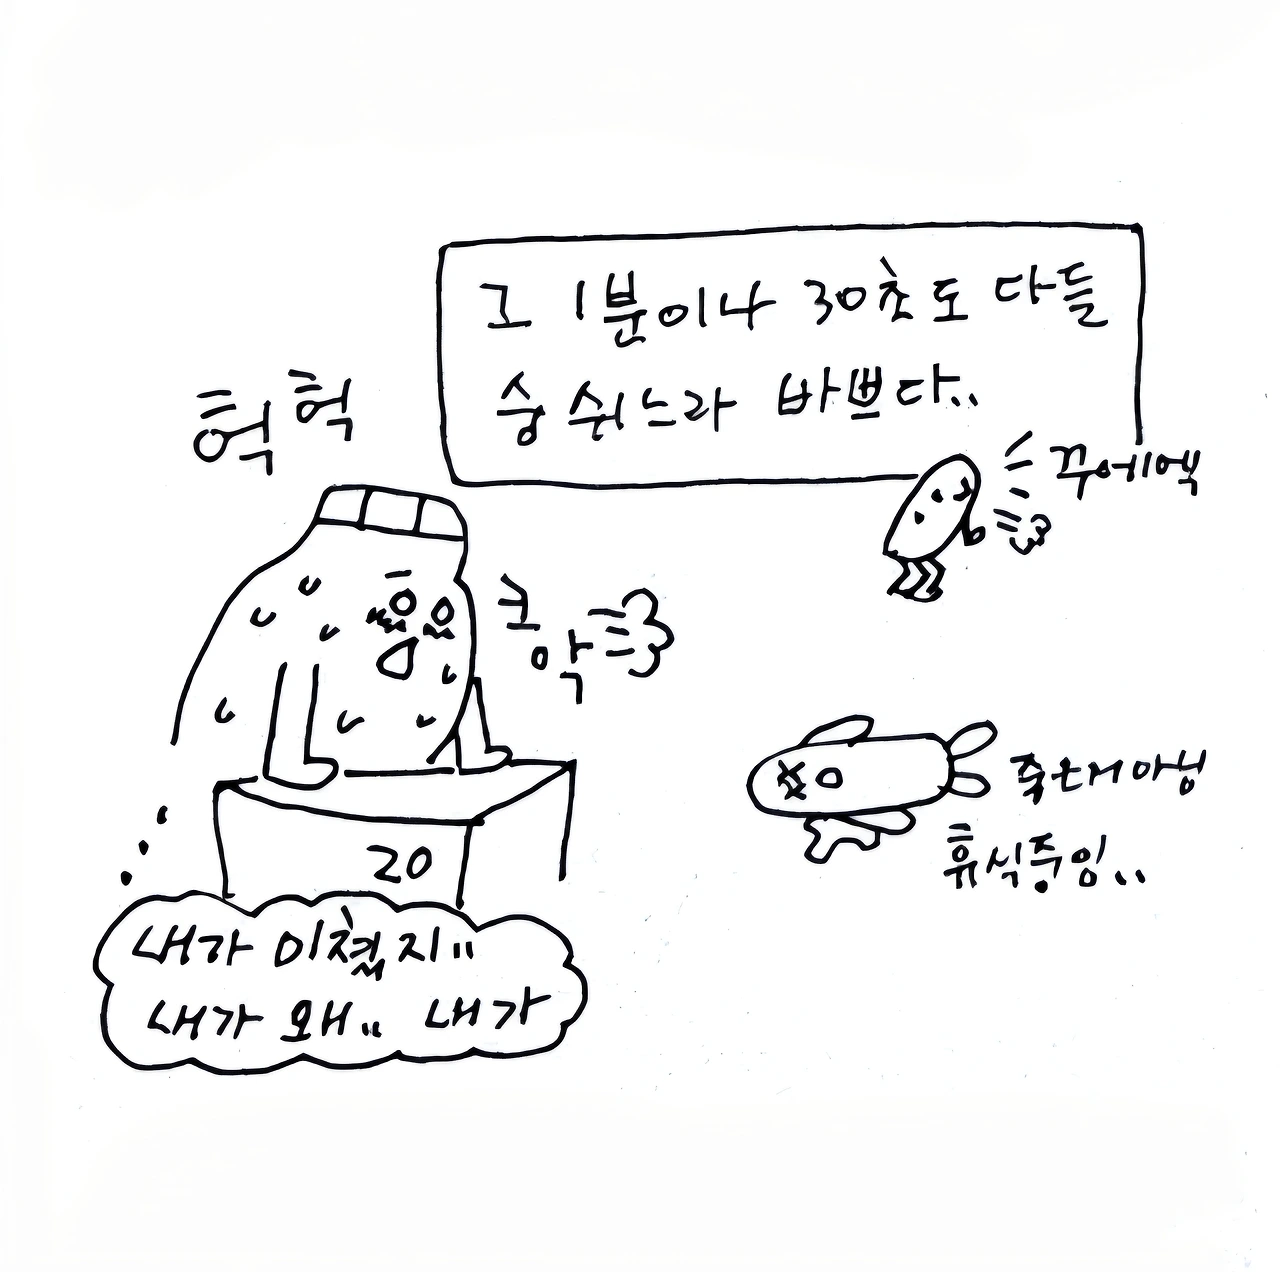 그 1분이나 30초도 다들
숨 쉬느라 바쁘다..
헉 헉
꾸에엑
크악
죽은거아님
휴식중임..
20
내가 미쳤지..
내가 왜.. 내가